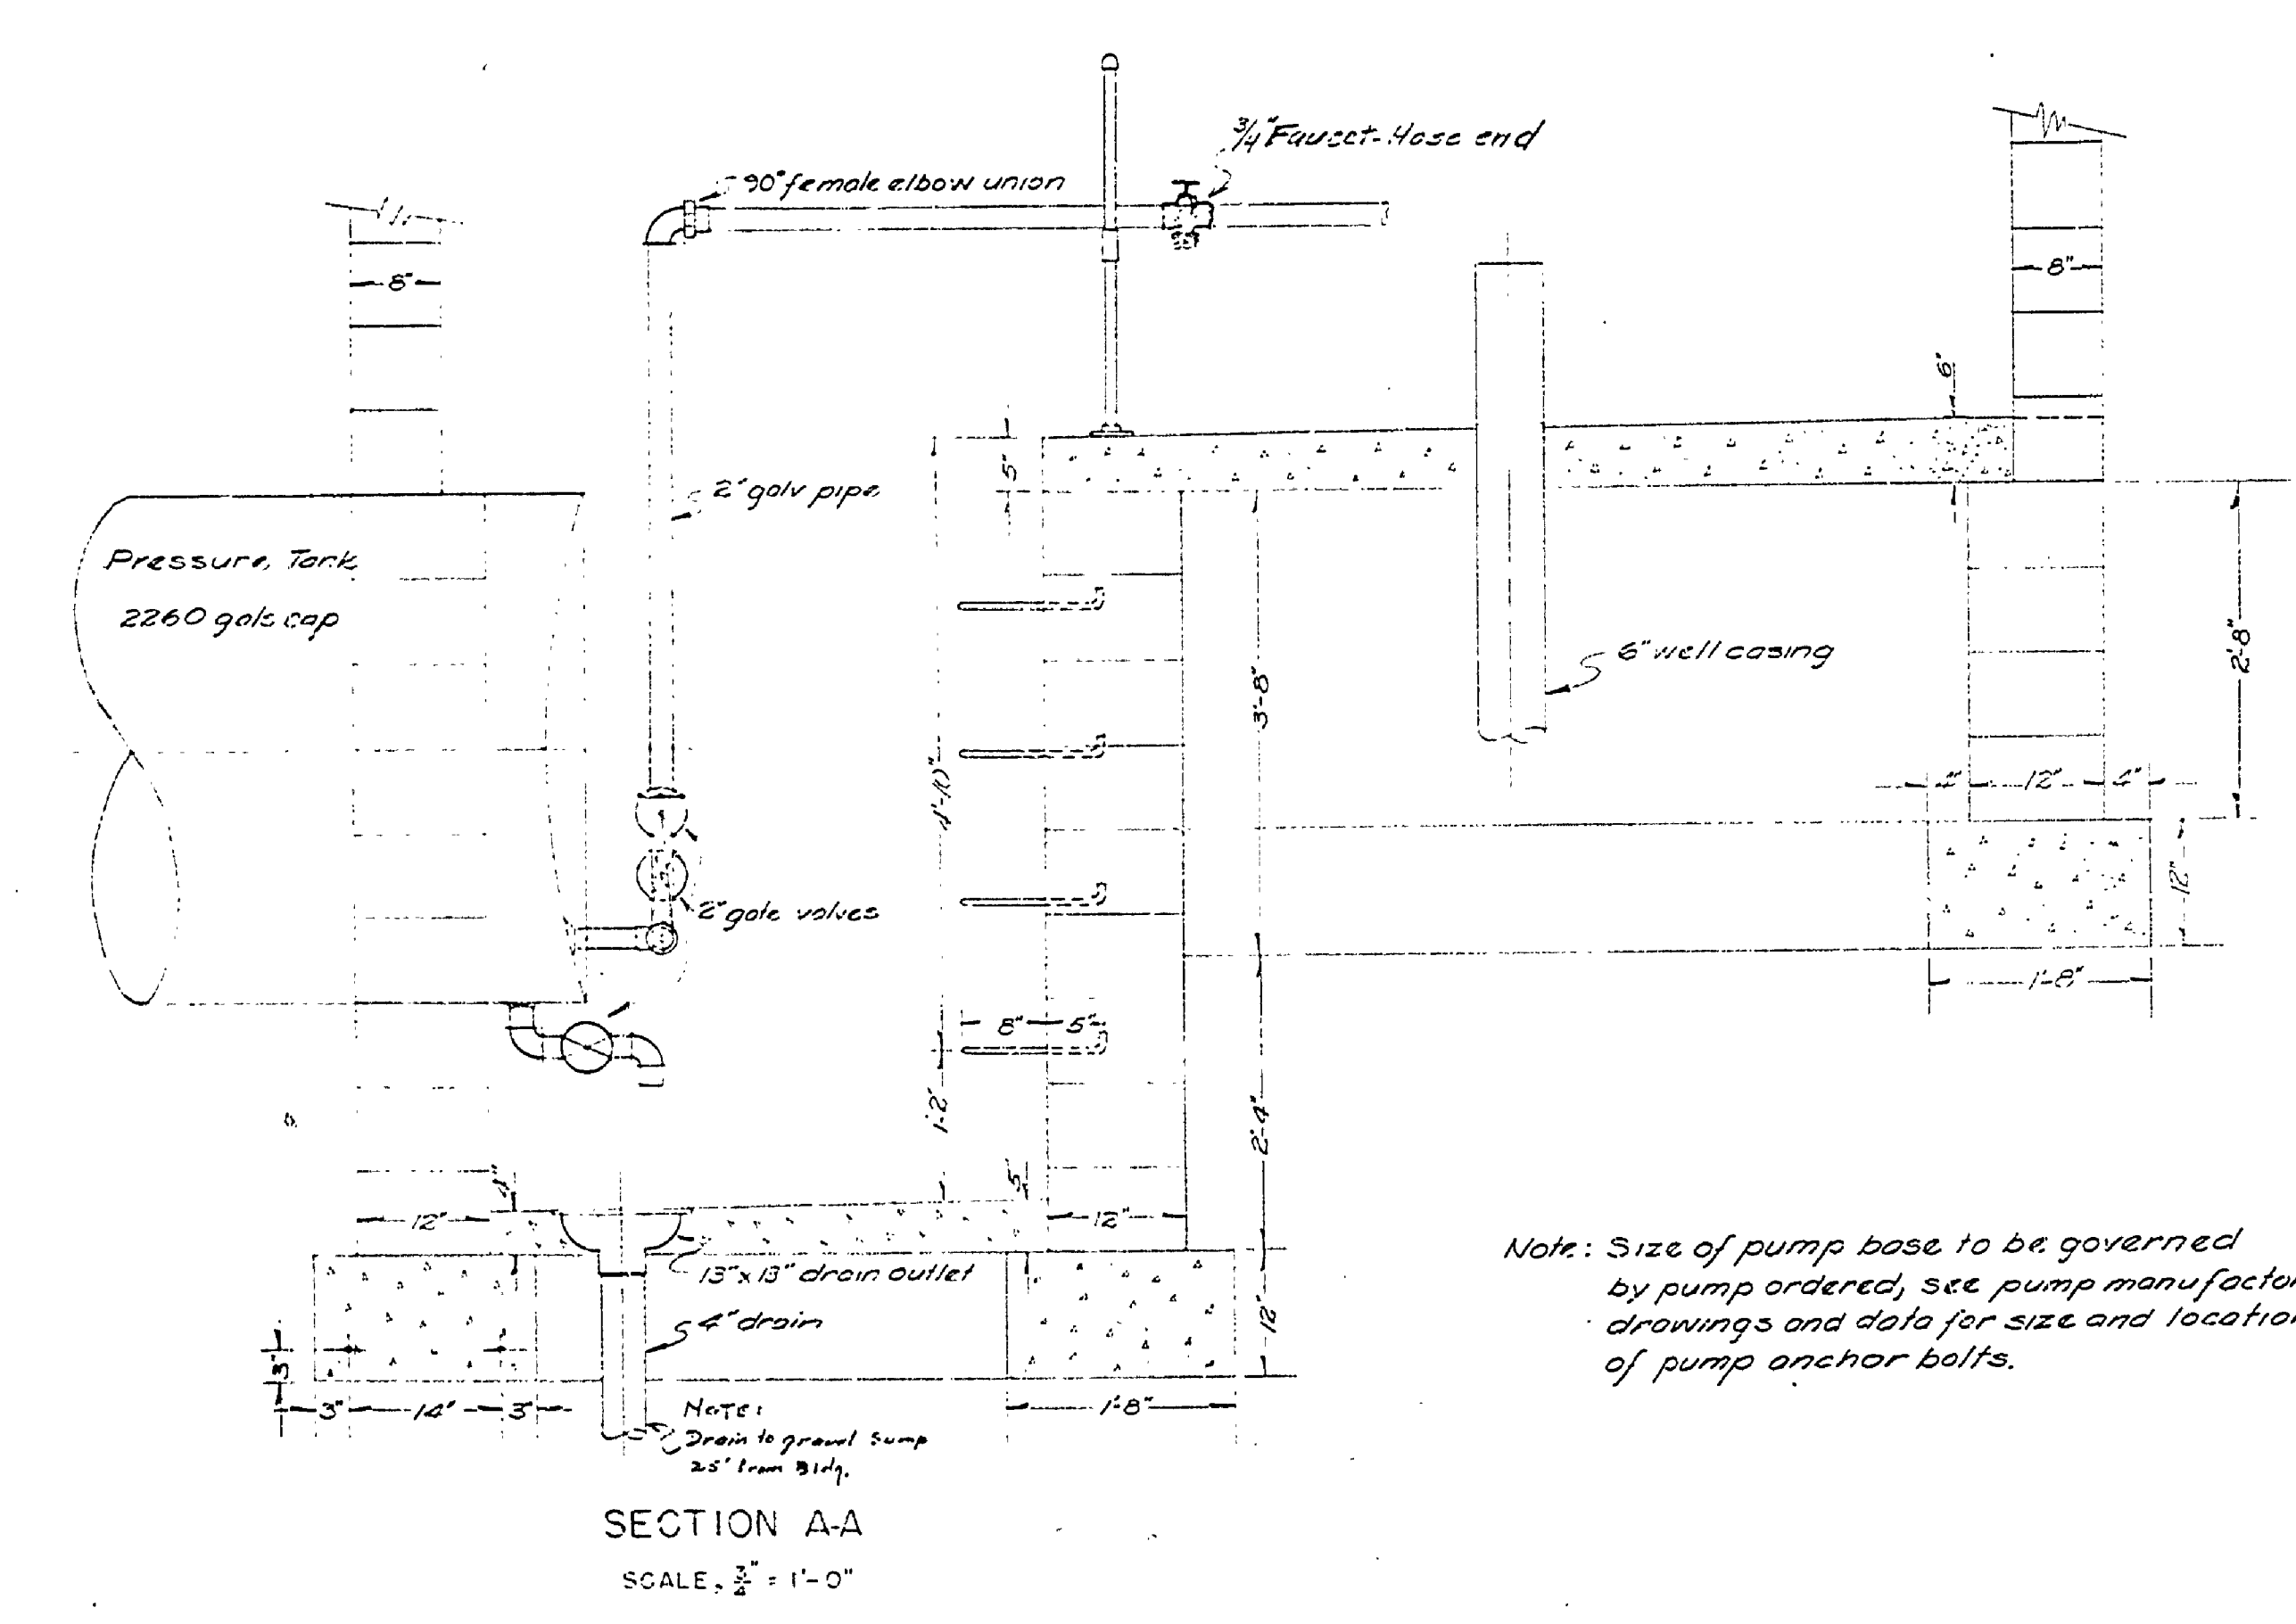 3/4" Faucet-Hose end
90° female elbow union
8"
8"
6"
5"
2" galv pipe
Pressure Tank
2260 gals cap
6" well casing
3'-8"
2'-8"
4'-10"
4"
12"
4"
12"
2" gate valves
1'-8"
8"
5"
1'-2"
2'-4"
5"
4"
12"
12"
13"x13" drain outlet
4" drain
12"
3"
3"
14"
3"
1'-8"
Note:
Drain to gravel sump
25' from Bldg.
Note: Size of pump base to be governed
by pump ordered, see pump
drawings and data for size and
of pump anchor bolts.
SECTION A-A
SCALE, 3/4" = 1'-0"